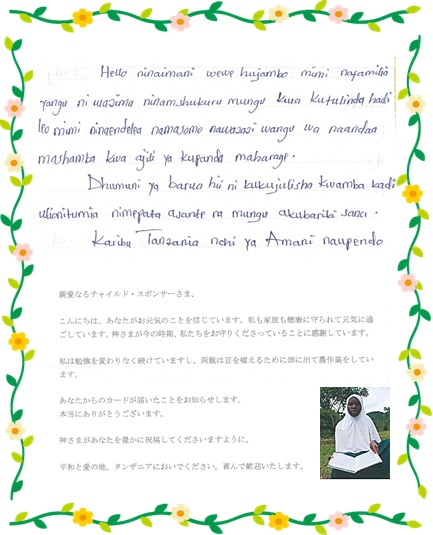 Hello ninaimani wewe hujambo mimi nafamilia
yangu ni wazima ninamshukuru mungu kwa kutulinda hadi
leo mimi ninaendelea namasomo nawazazi wangu wa naandaa
mashamba kwa ajili ya kupanda maharage.
Dhumuni ya barua hii ni kukujulisha kwamba kadi
ulionitumia nimepata asante na mungu akubariki sana.
Karibu Tanzania nchi ya Amani naupendo
親愛なるチャイルド・スポンサーさま、
こんにちは、あなたがお元気のことを信じています。私も家族も健康に守られて元気に過
ごしています。神さまが今の時期、私たちをお守りくださっていることに感謝しています。
私は勉強を変わりなく続けていますし、両親は豆を植えるために畑に出て農作業をしてい
ます。
あなたからのカードが届いたことをお知らせします。
本当にありがとうございます。
神さまがあなたを豊かに祝福してくださいますように、
平和と愛の地、タンザニアにおいでください。喜んで歓迎いたします。